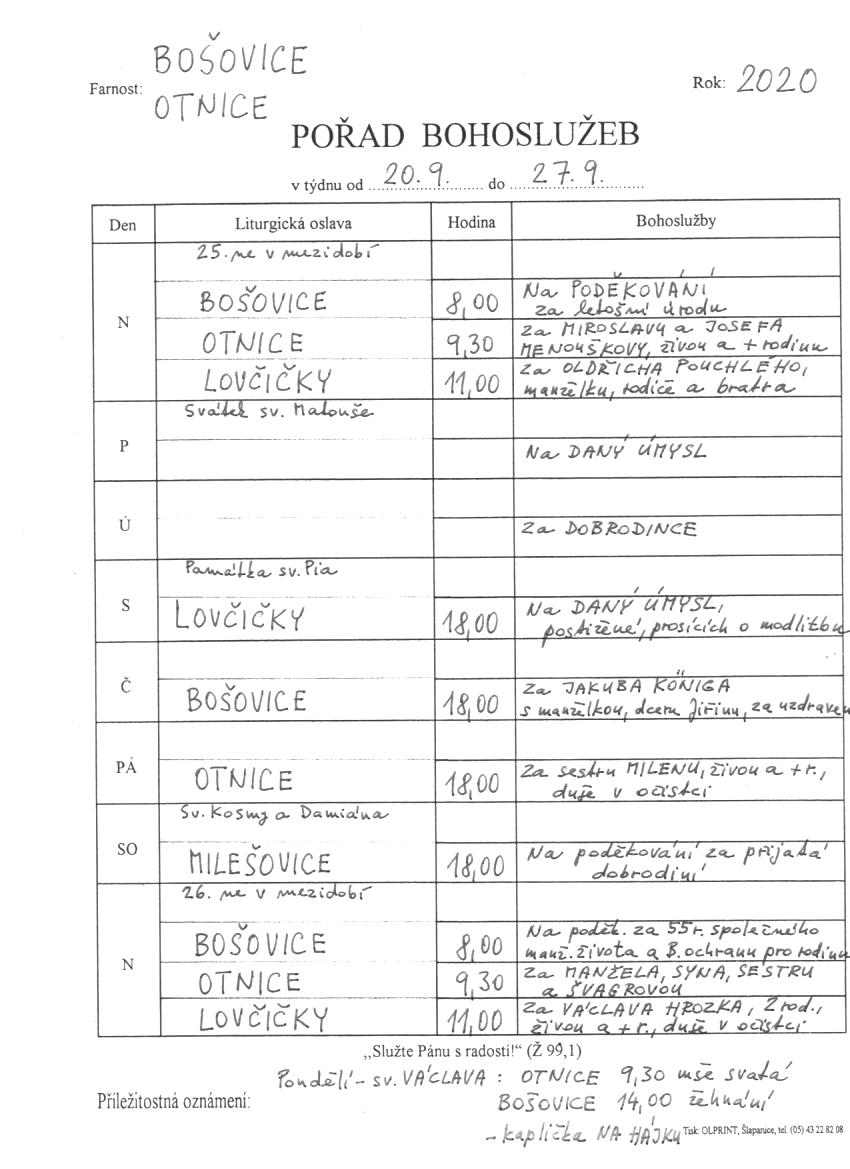 Farnost: BOŠOVICE
OTNICE
Rok: 2020
POŘAD BOHOSLUŽEB
v týdnu od 20.9. do 27.9.
Den Liturgická oslava Hodina Bohoslužby
25. ne v mezidobí
N BOŠOVICE 8,00 Na PODĚKOVÁNÍ
za letošní úrodu
OTNICE 9,30 za MIROSLAVU a JOSEFA
MENOUŠKOVY, živou a + rodinu
LOVČIČKY 11,00 za OLDŘICHA POUCHLÉHO,
manželku, rodiče a bratra
Svátek sv. Matouše
P Na DANÝ ÚMYSL
Ú Za DOBRODINCE
Památka sv. Pia
S LOVČIČKY 18,00 Na DANÝ ÚMYSL,
postižené, prosících o modlitbu
Č BOŠOVICE 18,00 za JAKUBA KÖNIGA
s manželkou, dceru Jiřinu, za uzdraven
PÁ OTNICE 18,00 Za sestru MILENU, živou a + r.,
duše v očistci
Sv. Kosmy a Damiána
SO MILEŠOVICE 18,00 Na poděkování za přijatá
dobrodiní
26. ne v mezidobí
N BOŠOVICE 8,00 Na poděk. za 55 r. společného
manž. života a B. ochranu pro rodinu
OTNICE 9,30 za MANŽELA, SYNA, SESTRU
a ŠVAGROVOU
LOVČIČKY 11,00 za VÁCLAVA HROZKA, 2 rod.,
živou a + r., duše v očistci
„Služte Pánu s radostí!“ (Ž 99,1)
Pondělí - sv. VÁCLAVA : OTNICE 9,30 mše svatá
Příležitostná oznámení: BOŠOVICE 14,00 žehnání
- kaplička NA HÁJKU Tisk: OLPRINT, Šlapanice, tel. (05) 43 22 82 08